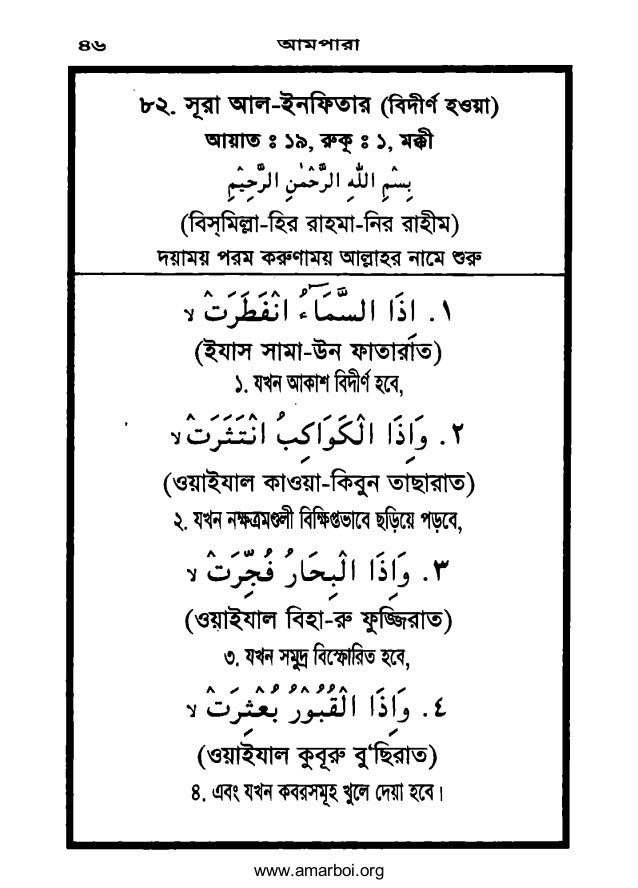 ৪৬ আমপারা
৮২. সূরা আল-ইনফিতার (বিদীর্ণ হওয়া)
আয়াত ঃ ১৯, রুকূ ঃ ১, মক্কী
بِسْمِ اللّٰهِ الرَّحْمٰنِ الرَّحِيْمِ
(বিস্‌মিল্লা-হির রাহমা-নির রাহীম)
দয়াময় পরম করুণাময় আল্লাহর নামে শুরু
١. اِذَا السَّمَآءُ انْفَطَرَتْ ۙ
(ইযাস সামা-উন ফাতার্রাত)
১. যখন আকাশ বিদীর্ণ হবে,
٢. وَاِذَا الْكَوَاكِبُ انْتَثَرَتْ ۙ
(ওয়াইযাল কাওয়া-কিবুন তাছারাত)
২. যখন নক্ষত্রমণ্ডলী বিক্ষিপ্তভাবে ছড়িয়ে পড়বে,
٣. وَاِذَا الْبِحَارُ فُجِّرَتْ ۙ
(ওয়াইযাল বিহা-রু ফুজ্জিরাত)
৩. যখন সমুদ্র বিস্ফোরিত হবে,
٤. وَاِذَا الْقُبُوْرُ بُعْثِرَتْ ۙ
(ওয়াইযাল কুবূরু বু‘ছিরাত)
৪. এবং যখন কবরসমূহ খুলে দেয়া হবে।
www.amarboi.org